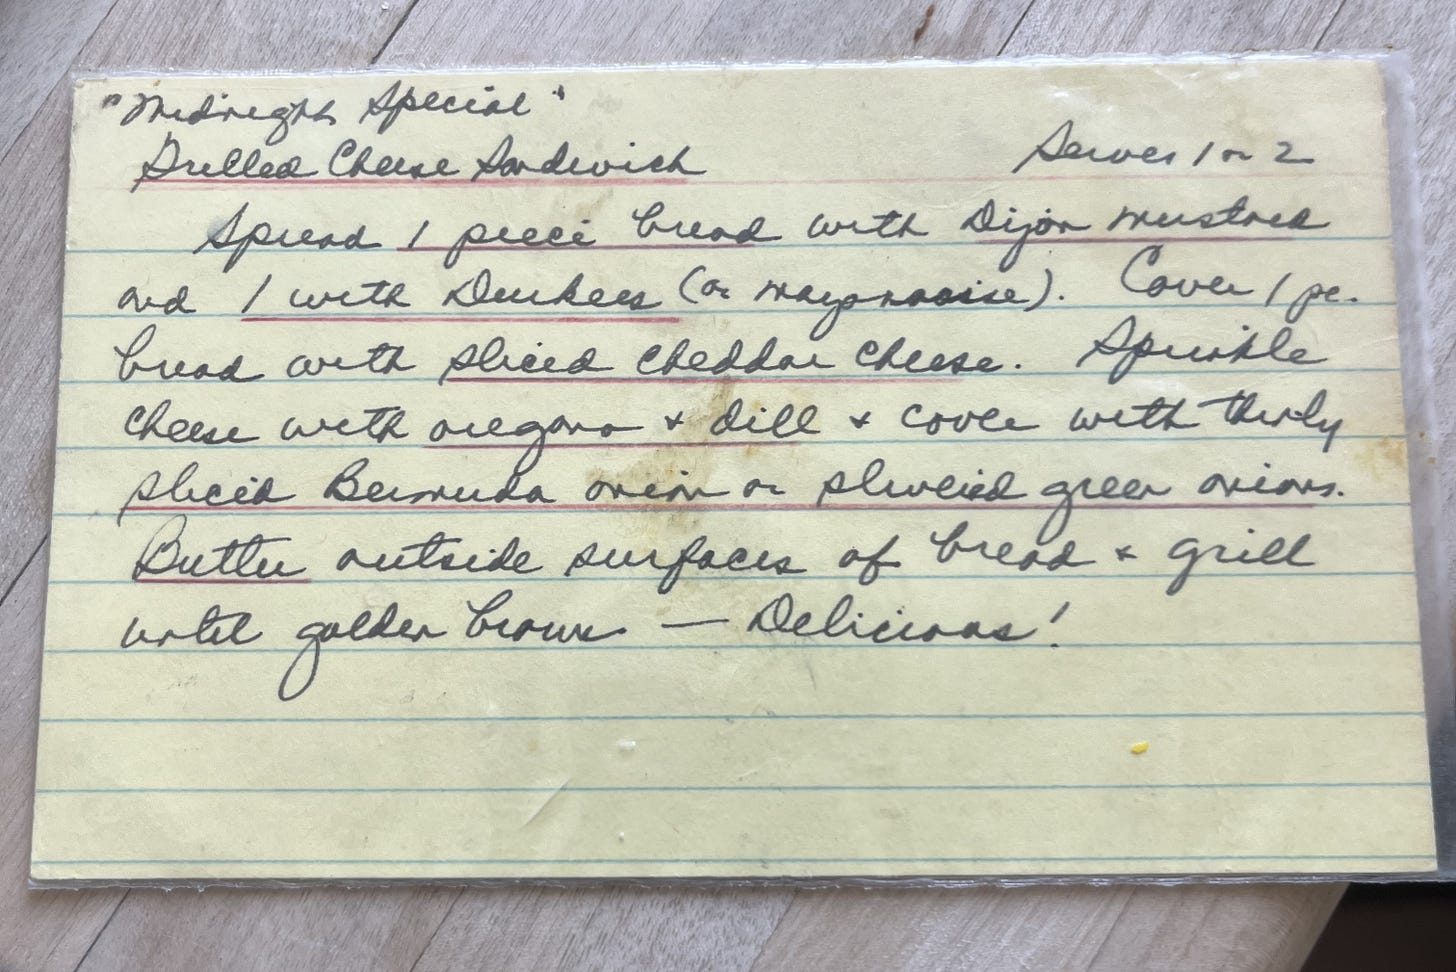 "Midnight Special"
Grilled Cheese Sandwich Serves 1 or 2
Spread 1 piece bread with Dijon mustard
and 1 with Durkees (or mayonnaise). Cover 1 pc.
bread with sliced cheddar cheese. Sprinkle
cheese with oregano + dill + cover with thinly
sliced Bermuda onion or slivered green onions.
Butter outside surfaces of bread + grill
until golden brown. — Delicious!